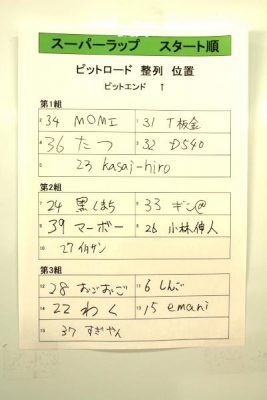 スーパーラップ スタート順
ピットロード 整列 位置
ピットエンド ↑
第1組
2 34 MOMI 1 31 T板金
4 36 たつ 3 32 D540
5 23 kasai-hiro
第2組
7 24 黒しまち 6 33 ギン@
9 39 マーボー 8 26 小林伸人
10 27 イイサン
第3組
12 28 おごおごご 11 6 しんご
14 22 わく 13 15 emani
15 37 すぎやん